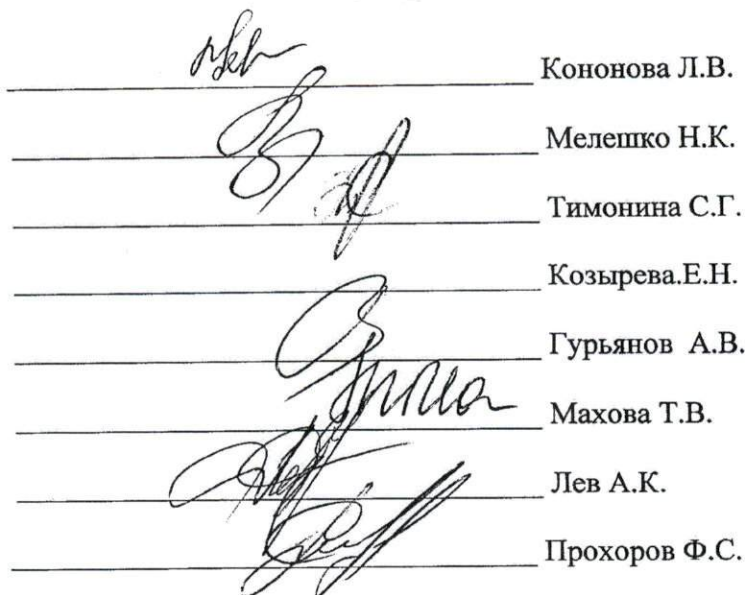 Кононова Л.В.
Мелешко Н.К.
Тимонина С.Г.
Козырева.Е.Н.
Гурьянов А.В.
Махова Т.В.
Лев А.К.
Прохоров Ф.С.